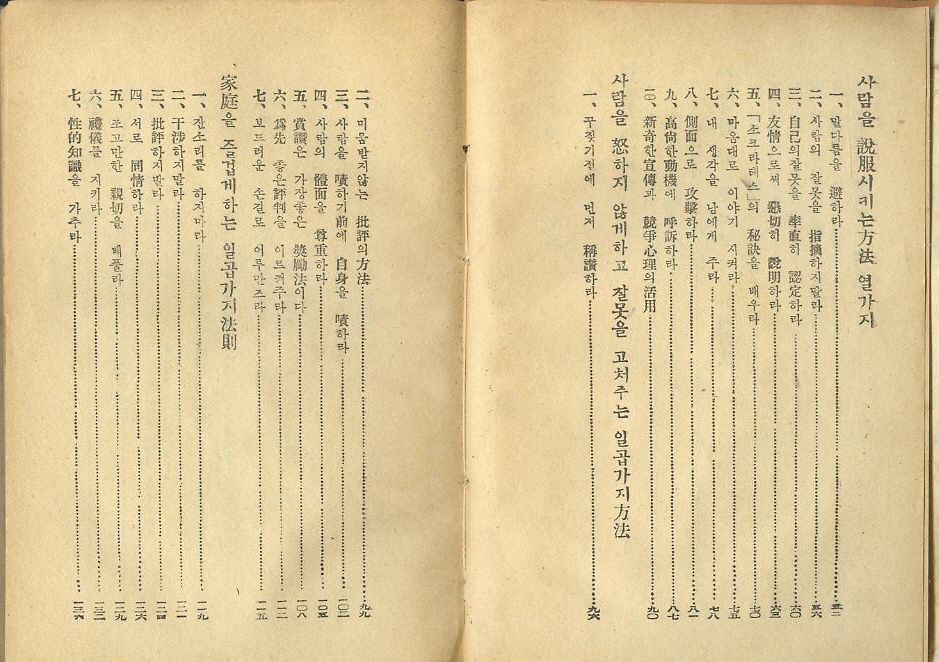 사람을 說服시키는方法 열가지
一、말다툼을 避하라 五二
二、사람의 잘못을 指摘하지말라 五六
三、自己의잘못을 率直히 認定하라 六〇
四、友情으로써 懇切히 說明하라 六三
五、「소크라테스」의 秘訣을 배우라 七〇
六、마음대로 이야기 시켜라 七五
七、내 생각을 남에게 주라 七八
八、側面으로 攻擊하라 八一
九、高尙한動機에 呼訴하라 八七
一〇、新奇한宣傳과 競爭心理의活用 九〇
사람을 怒하지 않게하고 잘못을 고처주는 일곱가지方法
一、꾸짓기전에 먼저 稱讚하라 九六
二、미움받지않는 批評의方法 九九
三、사람을 嘖하기前에 自身을 嘖하라 一〇二
四、사람의 體面을 尊重하라 一〇五
五、賞讚은 가장좋은 奬勵法이다 一〇八
六、爲先 좋은評判을 이르켜주라 一一二
七、보드러운 손길로 어루만즈라 一一五
家庭을 즐겁게하는 일곱가지法則
一、잔소리를 하지마라 一一九
二、干涉하지말라 一二一
三、批評하지말라 一二四
四、서로 同情하라 一二六
五、조고만한 親切을 베풀라 一二九
六、禮儀를 지키라 一三三
七、性的知識을 가추라 一三六